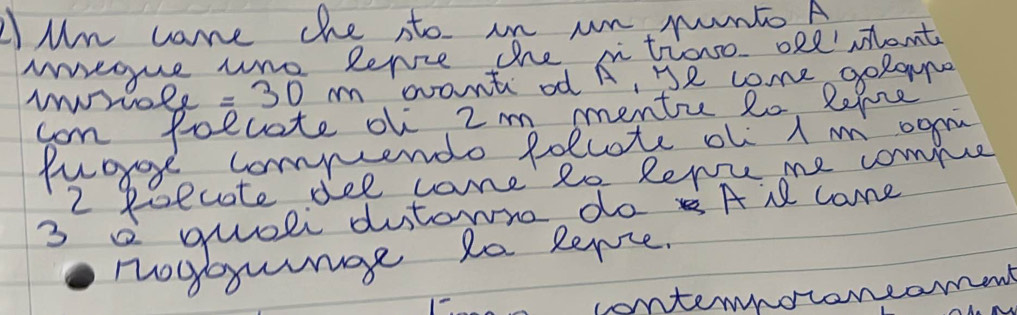 2) Un cane che sta in un punto A
insegue una lepre che si trova all'istante
iniziale = 30 m avanti ad A, Il cane galoppa
con falcate di 2 m mentre la lepre
fugge compiendo falcate di 1 m ogni
2 falcate del cane la lepre ne compie
3 a quali distanza da A il cane
raggiunge la lepre.
contemporaneament